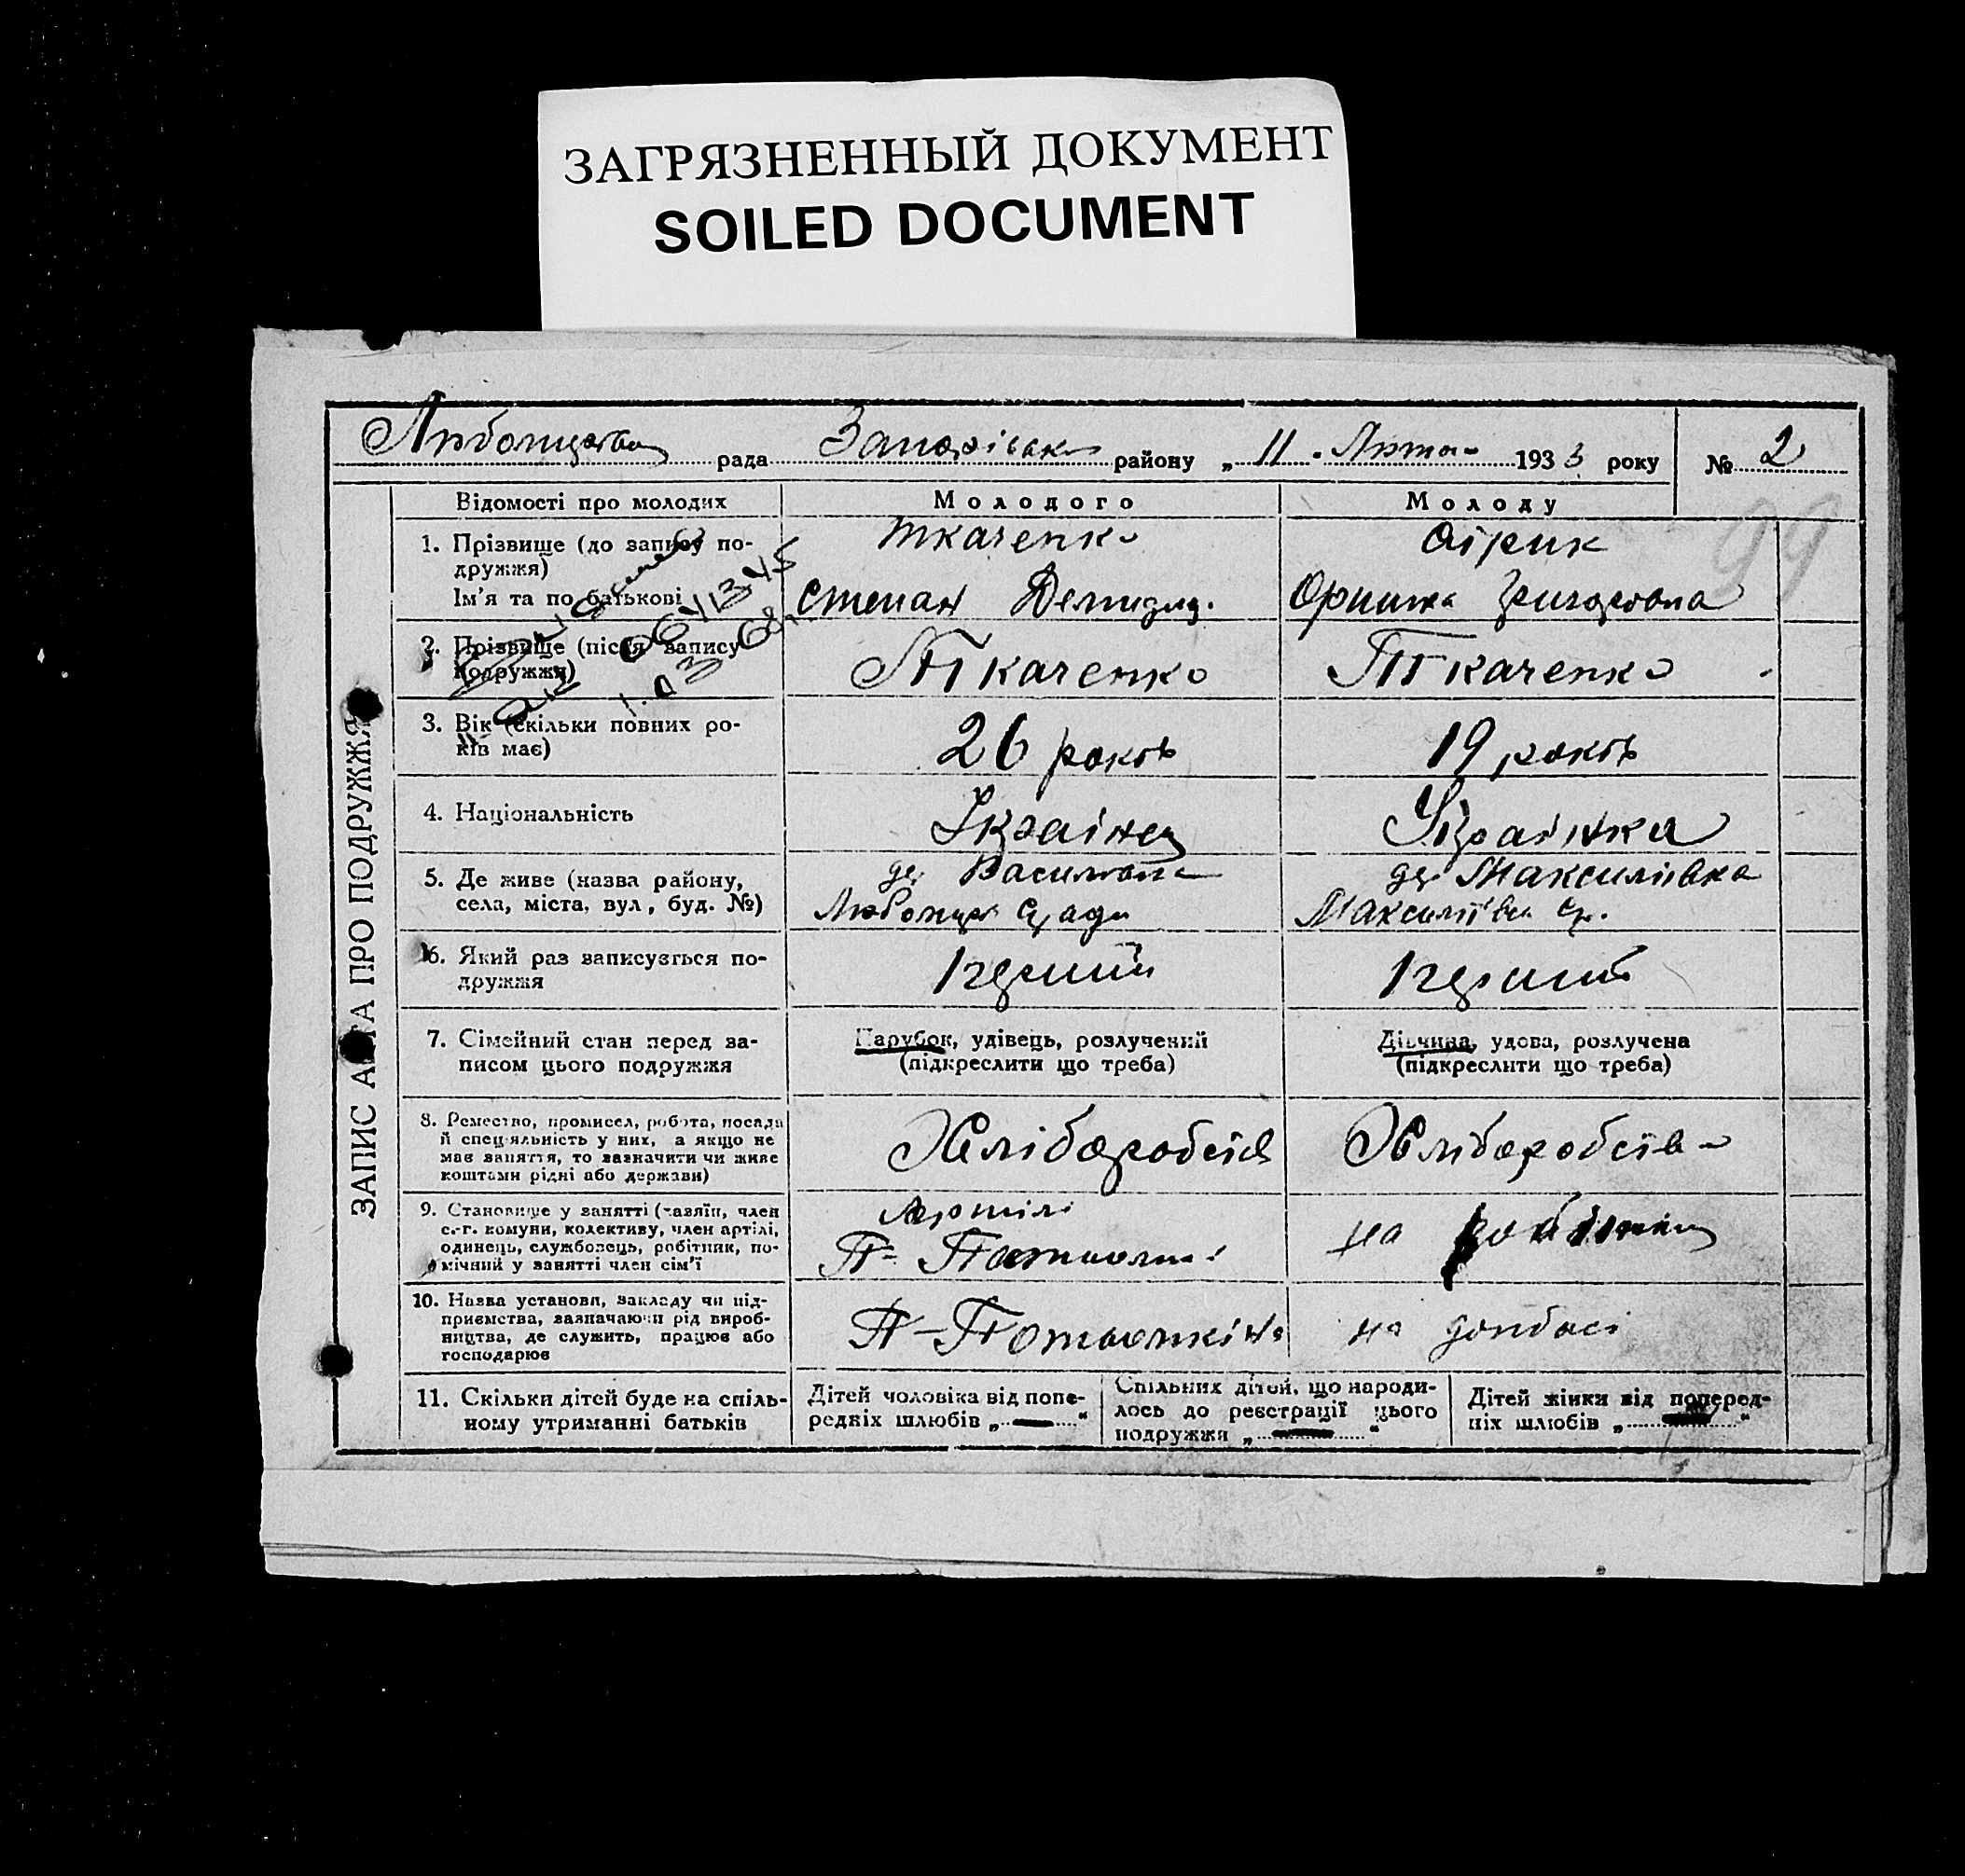 ЗАГРЯЗНЕННЫЙ ДОКУМЕНТ
SOILED DOCUMENT
рада району „ 11 " Лютого 1933 року № 2
99
ЗАПИС АКТА ПРО ПОДРУЖЖЯ
Відомості про молодих Молодого Молоду
1. Прізвище (до запису по-
дружжя)
Ткаченко
Ім'я та по батькові
Степан Демидов.
Григоровна
2. Прізвище (після запису
подружжя)
Ткаченко Ткаченко
3. Вік (скільки повних ро-
ків має)
26 років 19 років
4. Національність
Українец Українка
5. Де живе (назва району,
села, міста, вул, буд. №)
Максимівка
6. Який раз записується по-
дружжя
1 перший 1 перший
7. Сімейний стан перед за-
писом цього подружжя
Парубок, удівець, розлучений
(підкреслити що треба)
Дівчина, удова, розлучена
(підкреслити що треба)
8. Ремество, промисел, робота, посада
й спеціяльність у них, а якщо не
має заняття, то зазначити чи живе
коштами рідні або держави)
Хліборобсів
9. Становище у занятті (хазяїн, член
с.-г. комуни, колективу, член артілі,
одинець, службовець, робітник, по-
мічний у занятті член сім'ї
Артілі
на
10. Назва установи, закладу чи під-
приємства, зазначаючи рід вироб-
ництва, де служить, працює або
господарює
на донбасі
11. Скільки дітей буде на спіль-
ному утриманні батьків
Дітей чоловіка від попе-
редніх шлюбів „ — "
Спільних дітей, що народи-
лось до реєстрації цього
подружжя „ — "
Дітей жінки від поперед-
ніх шлюбів „ — "